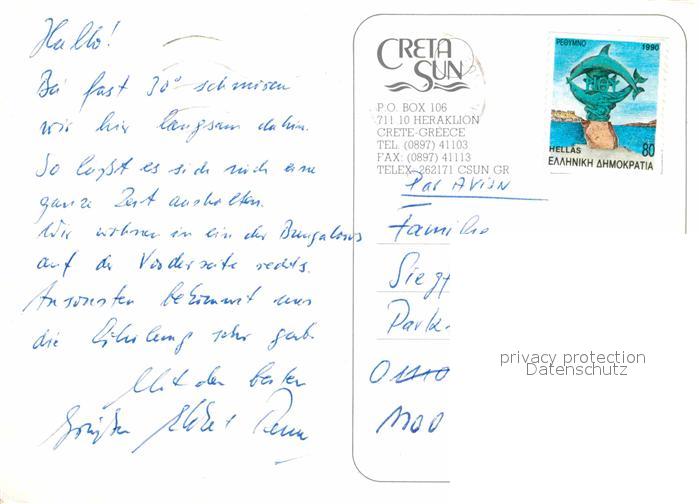 Hallo!
Bei fast 30° schmoren
wir hier langsam dahin.
So läßt es sich noch eine
ganze Zeit aushalten.
Wir wohnen in ein der Bungalows
auf der Vorderseite rechts.
Ansonsten bekommt uns
die Erholung sehr gut.
Mit den besten
Grüßen
CRETA
SUN
P.O. BOX 106
711 10 HERAKLION
CRETE-GREECE
TEL. (0897) 41103
FAX: (0897) 41113
TELEX 262171 CSUN GR
ΡΕΘΥΜΝΟ 1990
HELLAS 80
ΕΛΛΗΝΙΚΗ ΔΗΜΟΚΡΑΤΙΑ
Par AVION
Familie
Siegf
Park
privacy protection
Datenschutz